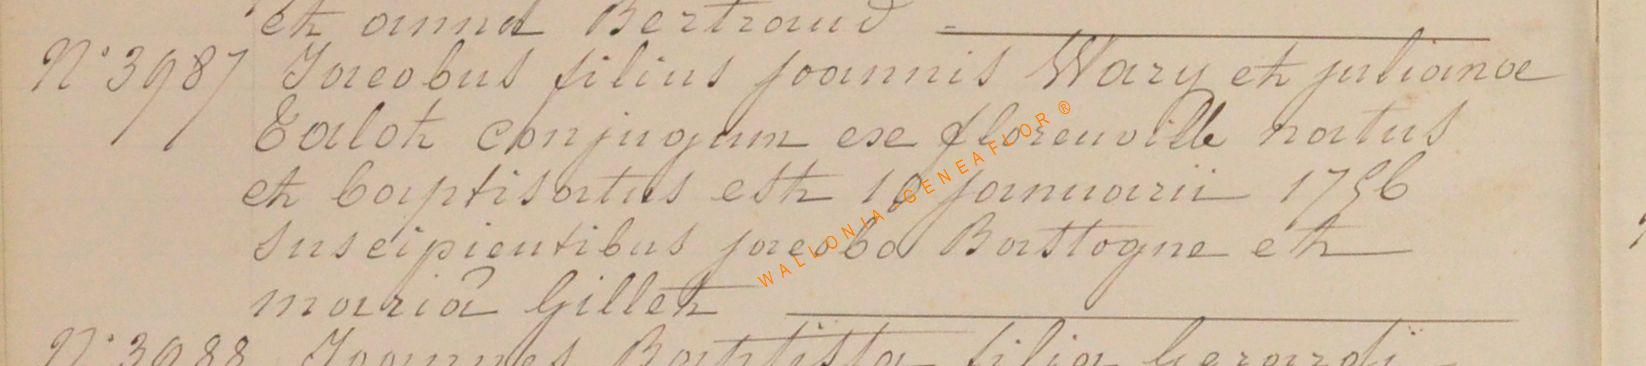 et anna Bertrand
N° 3987 Jacobus filius joannis Wary et julianae
Talot conjugum ex florenville natus
et baptisatus est 19 januarii 1756
suscipientibus jacobo Bastogne et
mariâ Gillet
N° 3988 Joannes Baptista filia Gerardi
WALLONIA-GENEAFLOR ®